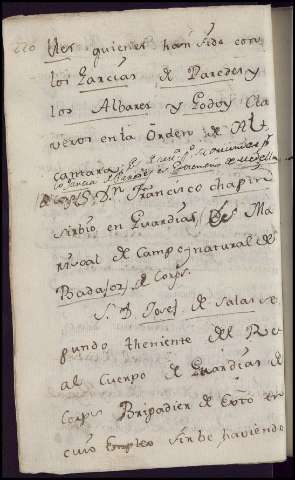 220
Ues quienes han sido con
los Garcias de Paredes y
los Albares y Godoy Cla
veros en la Orden de Al
camara
Garcia de Paredes es de Medellin
S. Dn Francisco chapin
sirbio en Guardias, es Ma
riscal de Campo y natural de
Badajoz, de Corps.
S. D Josef de Salas se
gundo theniente del Re
al Cuerpo de Guardias de
Corps Brigadier de Exto en
cuio Empleo sirbe haviendo